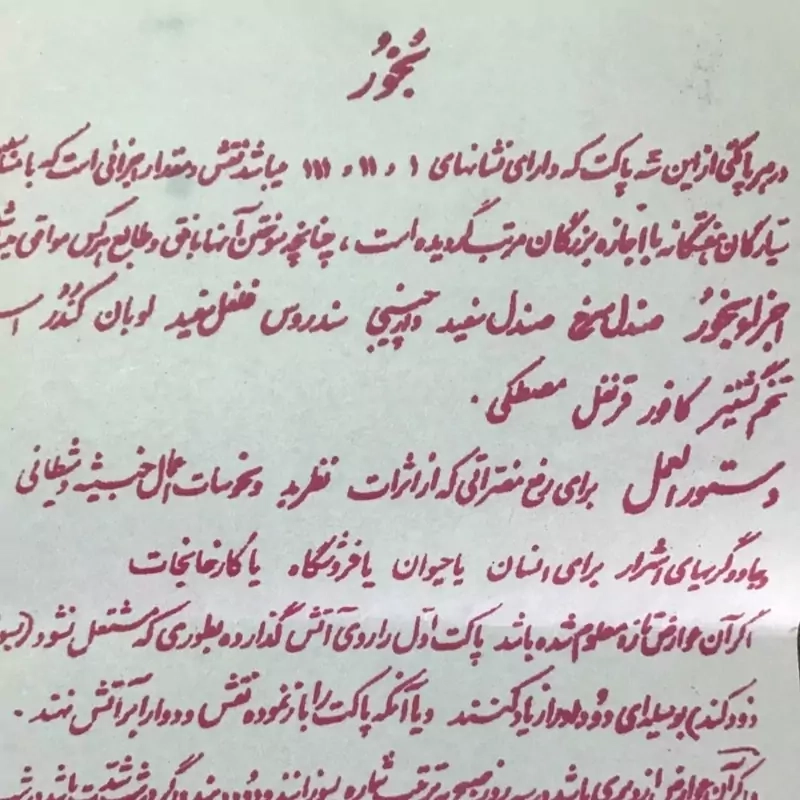 بُخُوْرُ
در هر پاکتی از این سه پاکت که دارای نشانهای ۱ و ۱۱ و ۱۱۱ میباشد نقش و مقدار اجزائی است که با
سیارگان هفتگانه با اجازه بزرگان مرتب گردیده است ، چنانچه سوختن آنها بافق و طالع هر کس موافق
اجزاء بخورُ صندل سرخ صندل سفید سندروس فلفل سفید لوبان کُندُر
تخم گشنیز کافور قرنفل مصطکی .
دستور العمل برای رفع مضراتی که از اثرات نظر بد و نحوسات اعمال خبیثه و شیطانی
و جادوگریهای اشرار برای انسان یا حیوان یا فروشگاه یا کارخانجات
اگر آن عوارض تازه معلوم شده باشد پاکت اوّل را روی آتش گذارده بطوری که مشتعل نشود
دود کند) بوسیله‌ای دود او را زیاد کنند و یا آنکه پاکت را باز نموده نقش و دوا را بر آتش نهند .
و اگر آن عوارض از دیری باشد در سه روز صبح به ترتیب شماره بسوزانند و دود دهند و اگر